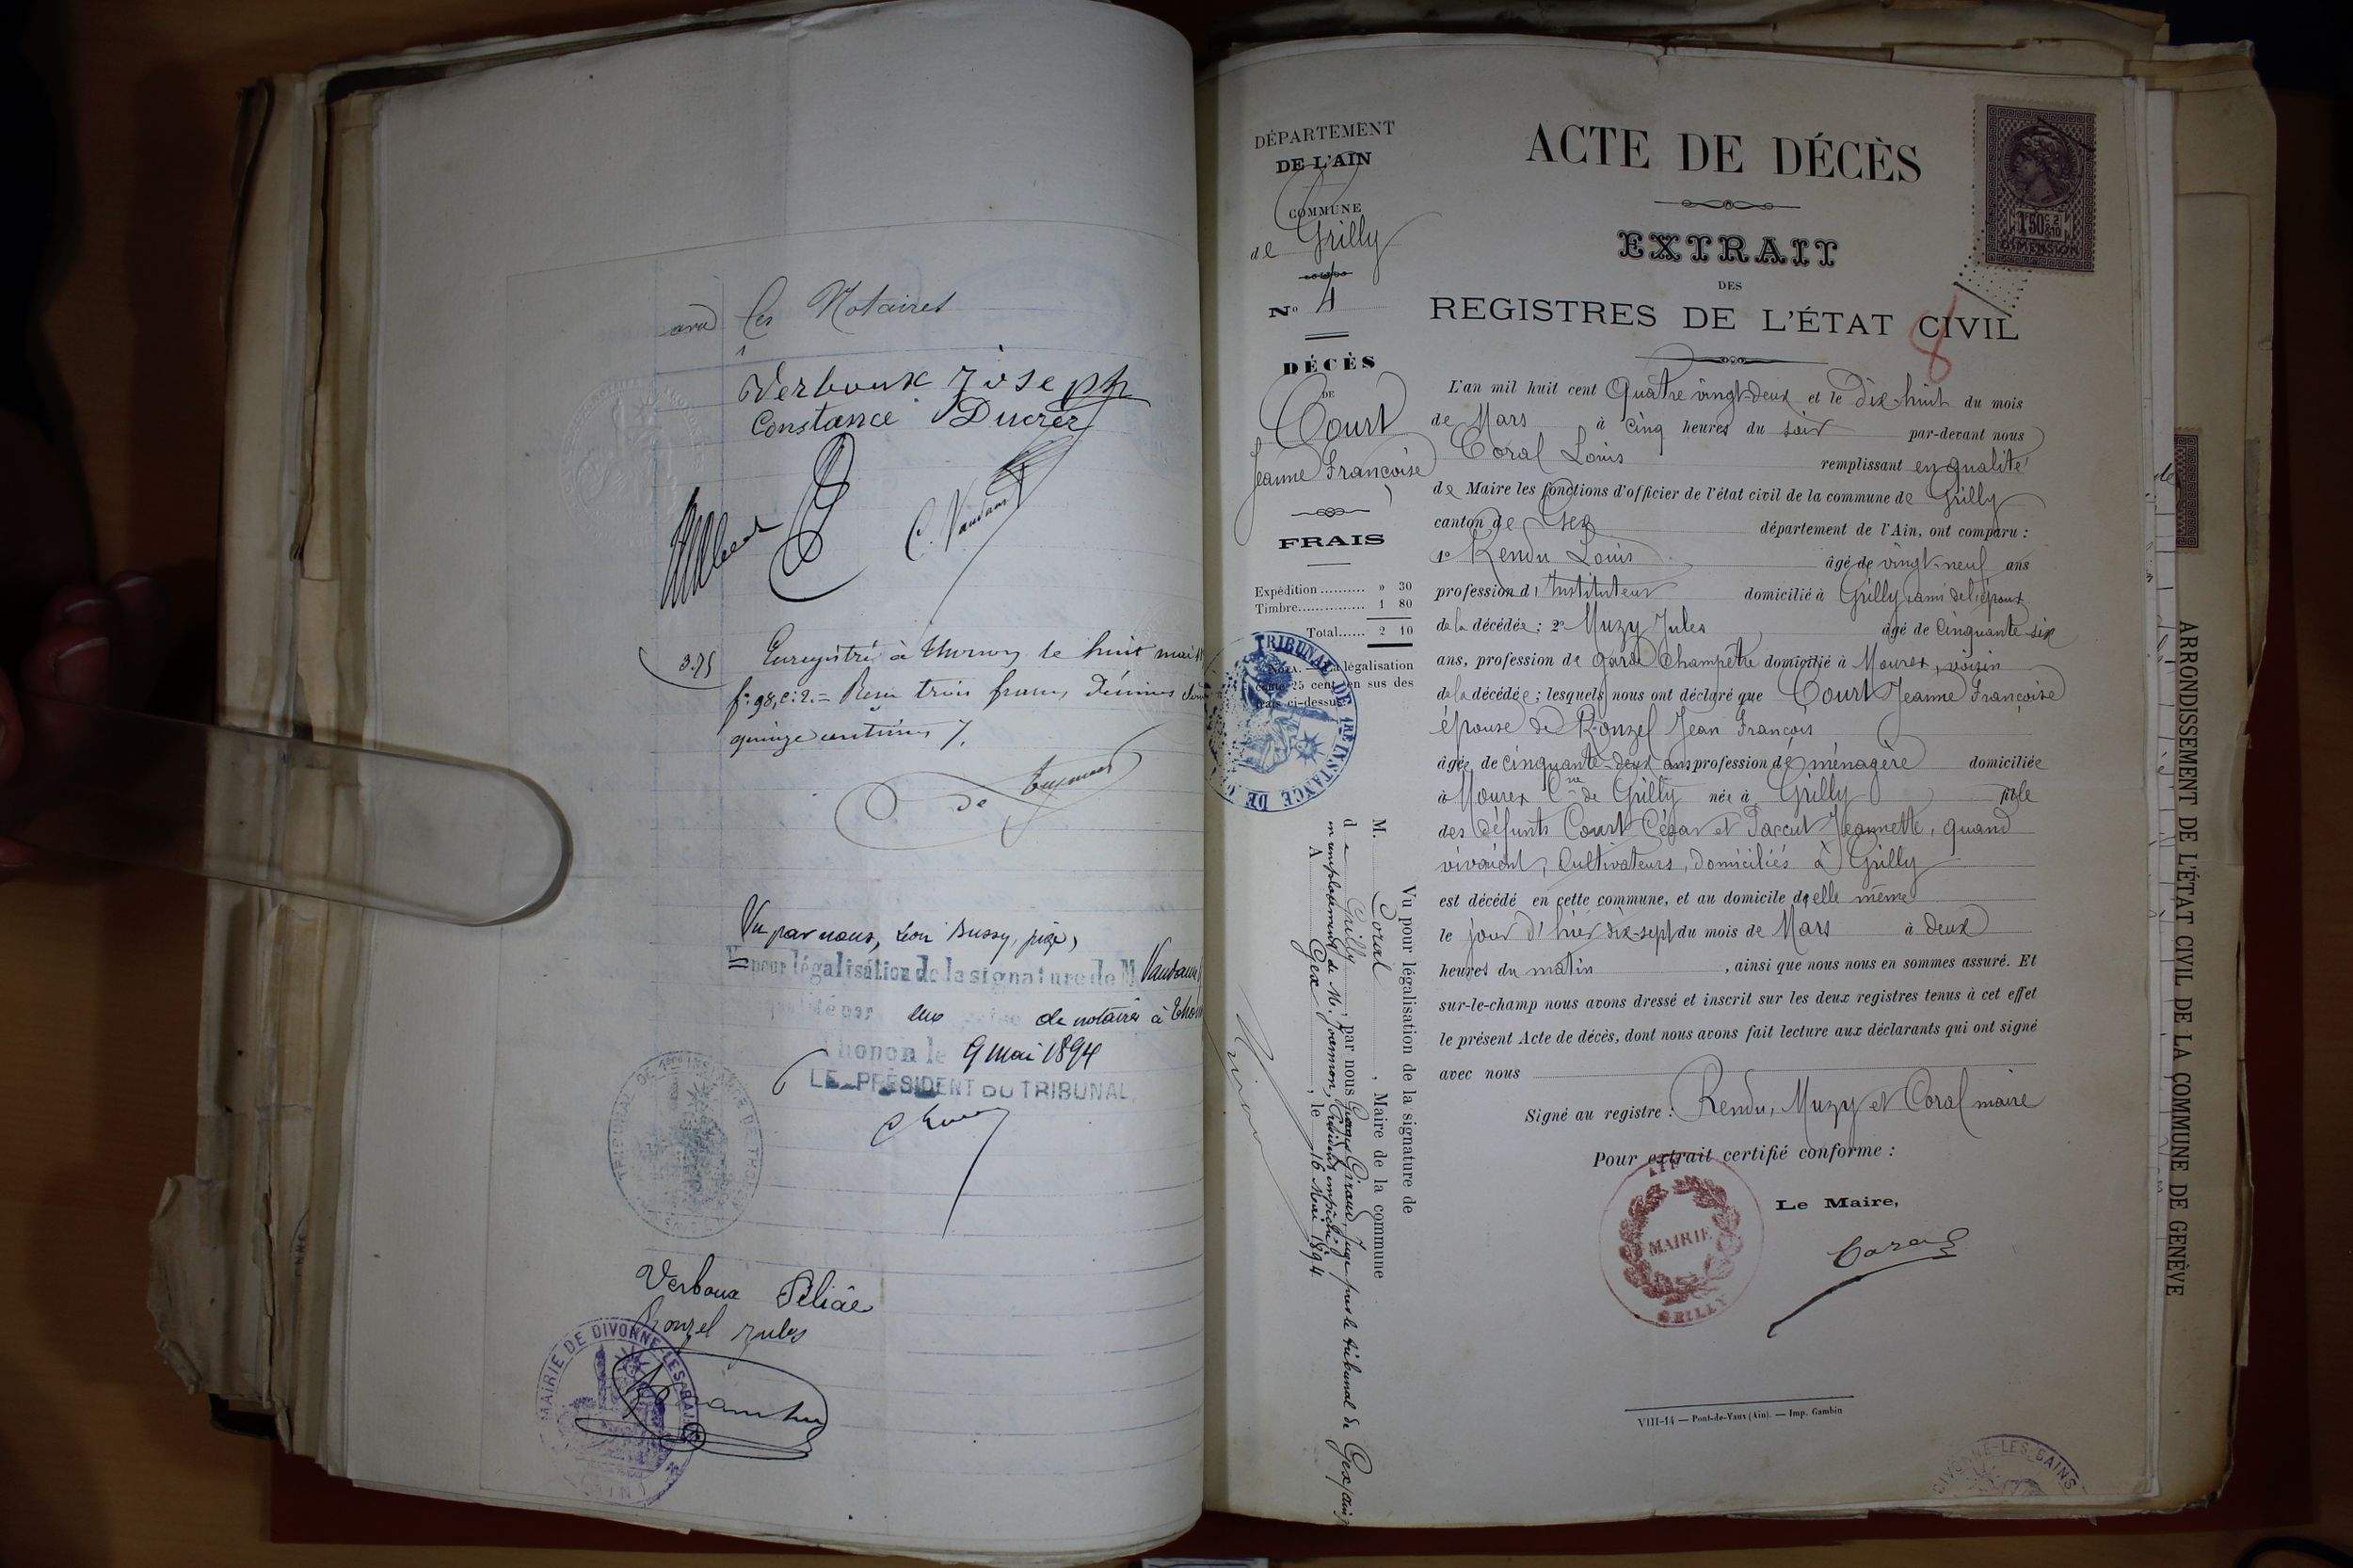 avec les Notaires
Verboux Joseph
Constance Ducrêt
C. Vaudaux
3.75
Enregistré à Thonon le huit mai
f: 98, c: 2. = Reçu trois francs, décimes
quinze centimes
Vu par nous, Léon Bussy, juge,
pour légalisation de la signature de M Vaudaux
de notaires à Thonon
Thonon le 9 mai 1894
LE PRÉSIDENT DU TRIBUNAL,
Verboux Péliâe
Ronzel Jules
MAIRIE DE DIVONNE-LES-BAINS
DÉPARTEMENT
DE L'AIN
COMMUNE
de Grilly
No 4
DÉCÈS
DE
Court
Jeanne Françoise
FRAIS
Expédition .......... » 30
Timbre............... 1 80
Total...... 2 10
NOTA. — La légalisation
coûte 25 cent. en sus des
frais ci-dessus.
TRIBUNAL DE 1RE INSTANCE DE
Vu pour légalisation de la signature de
M. Coral, Maire de la commune
de Grilly, par nous Georges Giraud, Juge près le tribunal de Gex (Ain)
en remplacement de M.
A Gex, le 16 Mai 1894
ACTE DE DÉCÈS
EXTRAIT
DES
REGISTRES DE L'ÉTAT CIVIL
8
1F50C 2/10
DIMENSION
L'an mil huit cent Quatre vingt-deux et le Dix-huit du mois
de Mars à cinq heures du soir par-devant nous
Coral Louis remplissant en qualité
de Maire les fonctions d'officier de l'état civil de la commune de Grilly
canton de Gex département de l'Ain, ont comparu :
1o Rendu Louis âgé de vingt-neuf ans
profession d'Instituteur domicilié à Grilly, ami de l'époux
de la décédée ; 2o Muzy Jules âgé de cinquante six
ans, profession de garde champêtre domicilié à Mourex, voisin
de la décédée ; lesquels nous ont déclaré que Court Jeanne Françoise
épouse de Ronzel Jean François
âgée de cinquante-deux ans profession de ménagère domiciliée
à Mourex Cne de Grilly née à Grilly fille
des défunts Court César et Parcut Jeannette, quand
vivaient, cultivateurs, domiciliés à Grilly
est décédé en cette commune, et au domicile d'elle même
le jour d'hier dix-sept du mois de Mars à deux
heures du matin, ainsi que nous nous en sommes assuré. Et
sur-le-champ nous avons dressé et inscrit sur les deux registres tenus à cet effet
le présent Acte de décès, dont nous avons fait lecture aux déclarants qui ont signé
avec nous
Signé au registre : Rendu, Muzy et Coral maire
Pour extrait certifié conforme :
Le Maire,
Coral
MAIRIE
GRILLY
VIII-14 — Pont-de-Vaux (Ain). — Imp. Gambin
DIVONNE-LES-BAINS
ARRONDISSEMENT DE L'ÉTAT CIVIL DE LA COMMUNE DE GENÈVE